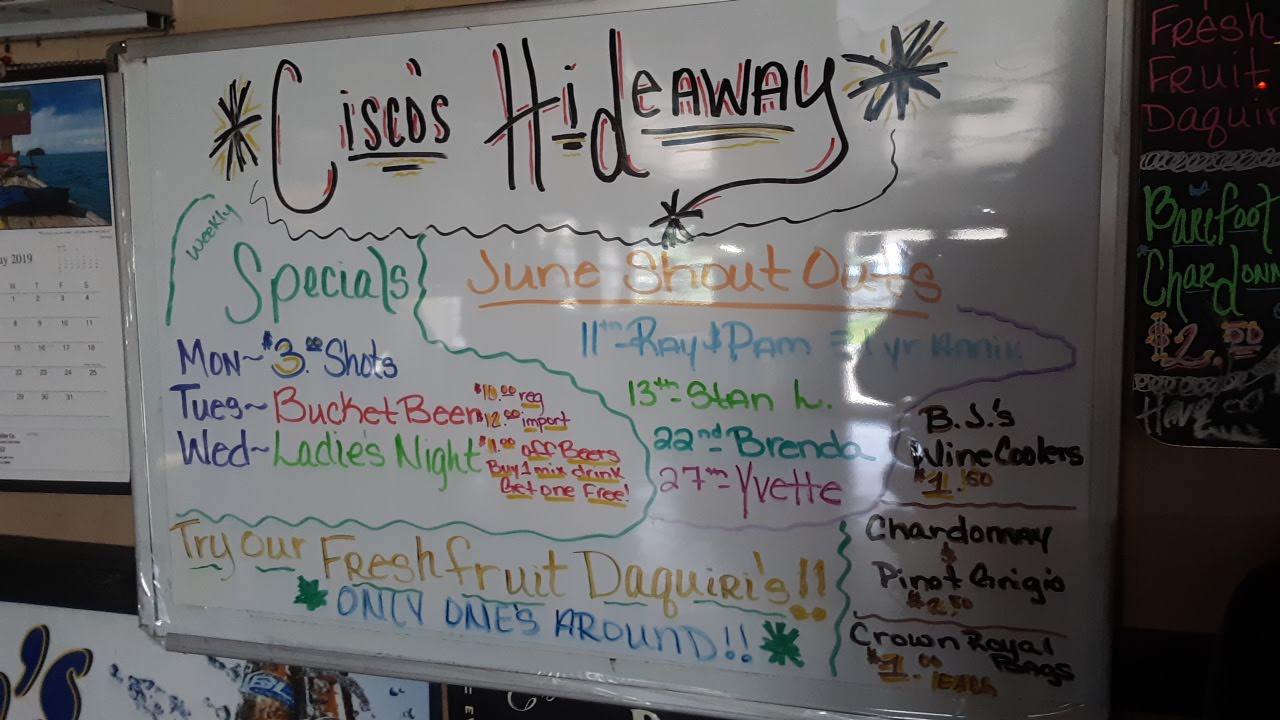 Cisco's Hideaway
Weekly
Specials
Mon~ $3.00 Shots
Tues~ Bucket Beer
$10.00 reg
$12.00 import
Wed~ Ladie's Night
$1.00 off Beers
Buy 1 mix drink
Get one Free!
June Shout Outs
11th - Ray & Pam = 1 yr Anniv
13th - Stan L.
22nd Brenda
27th - Yvette
B.J.'s
Wine Coolers
$1.50
Chardonnay
&
Pinot Grigio
$2.50
Crown Royal
Bags
$1.00 each
Try our Fresh fruit Daquiri's!!
ONLY ONE'S AROUND!!
Fresh
Fruit
Daquir
Barefoot
Chardonn
$2.50
Have
2019
T F S
2 3 4
8 9 10 11
15 16 17 18
22 23 24 25
29 30 31
's